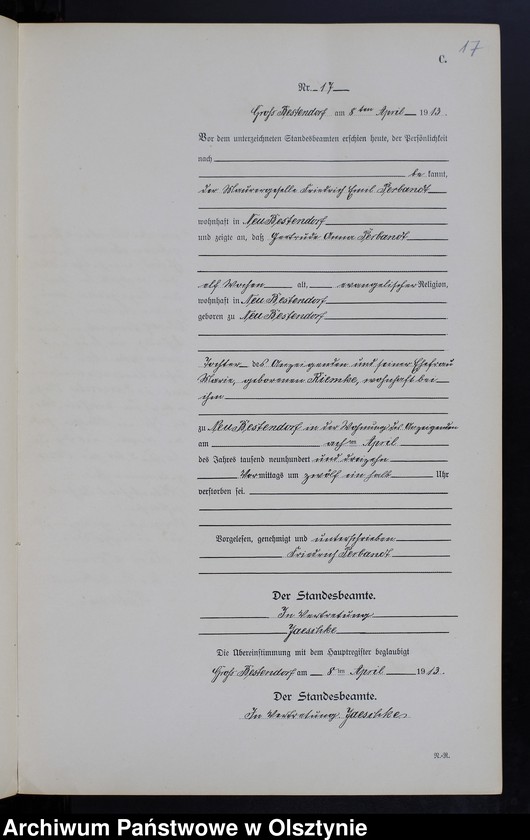 17
C.
Nr. 17
Groß Bestendorf am 8ten April 1913.
Vor dem unterzeichneten Standesbeamten erschien heute, der Persönlichkeit
nach
be kannt,
der Maurergeselle Friedrich Emil Perbandt
wohnhaft in Neu Bestendorf
und zeigte an, daß Gertrude Anna Perbandt
elf Wochen alt, evangelischer Religion,
wohnhaft in Neu Bestendorf
geboren zu Neu Bestendorf
Tochter des Anzeigenden und seiner Ehefrau
Marie, geborenen Riemke, wohnhaft bei
ihm
zu Neu Bestendorf in der Wohnung des Anzeigenden
am April
des Jahres tausend neunhundert und dreizehn
Vormittags um zwölf ein halb Uhr
verstorben sei.
Vorgelesen, genehmigt und unterschrieben
Friedrich Perbandt
Der Standesbeamte.
In Vertretung
Jaeschke
Die Übereinstimmung mit dem Hauptregister beglaubigt
Groß Bestendorf am 8ten April 1913.
Der Standesbeamte.
In Vertretung Jaeschke
R.-R.
Archiwum Państwowe w Olsztynie